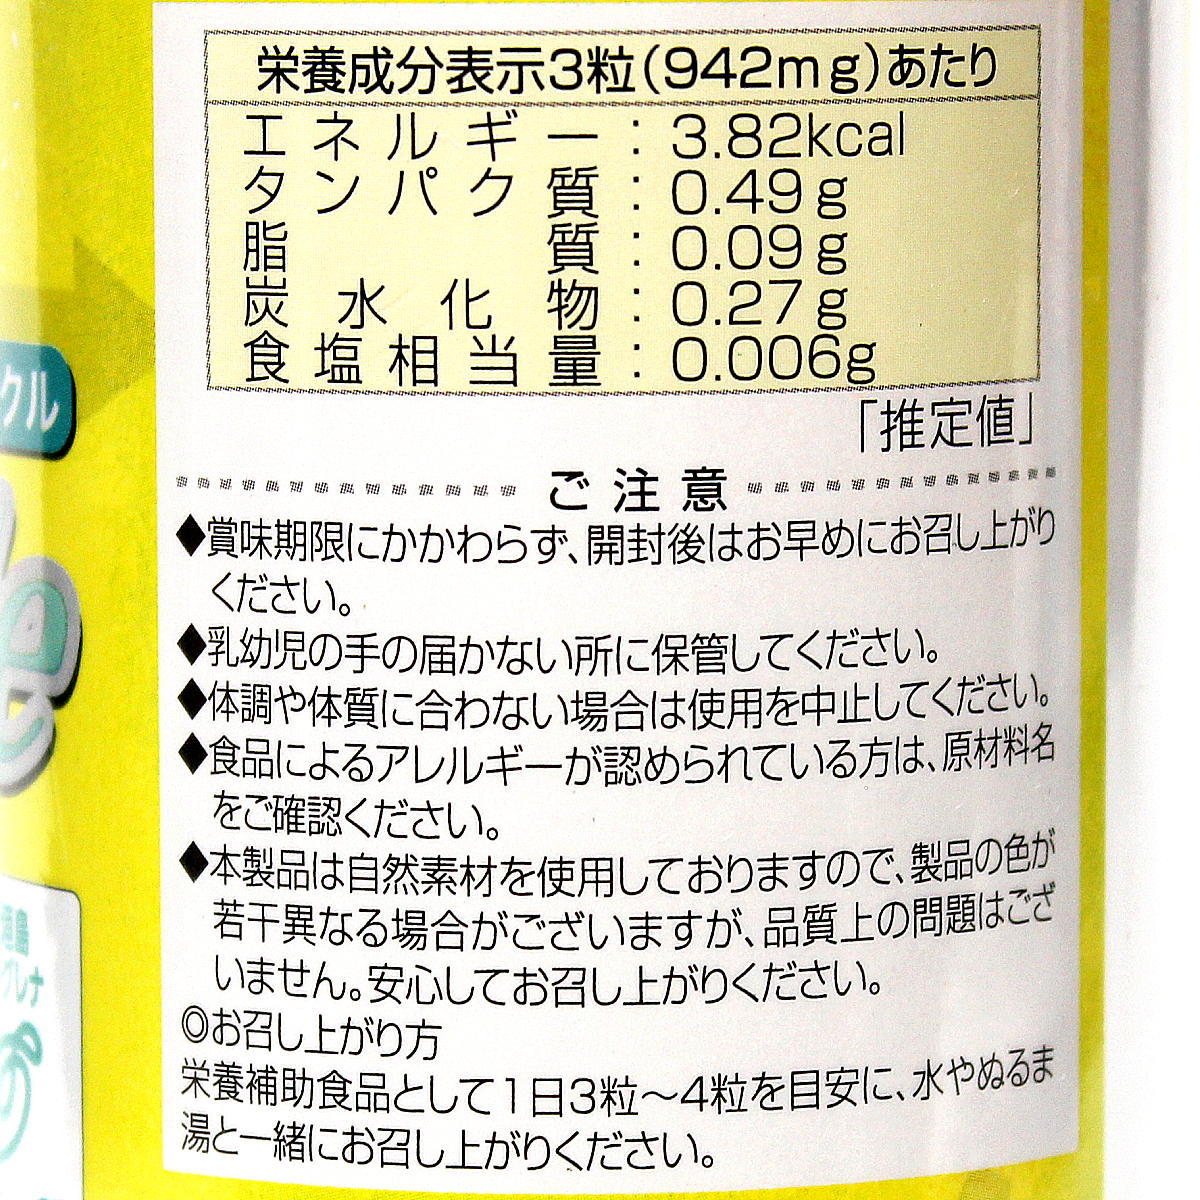 栄養成分表示3粒(942mg)あたり
エネルギー：3.82kcal
タンパク質：0.49g
脂質：0.09g
炭水化物：0.27g
食塩相当量：0.006g
「推定値」
ご注意
◆賞味期限にかかわらず、開封後はお早めにお召し上がり
ください。
◆乳幼児の手の届かない所に保管してください。
◆体調や体質に合わない場合は使用を中止してください。
◆食品によるアレルギーが認められている方は、原材料名
をご確認ください。
◆本製品は自然素材を使用しておりますので、製品の色が
若干異なる場合がございますが、品質上の問題はござ
いません。安心してお召し上がりください。
◎お召し上がり方
栄養補助食品として1日3粒～4粒を目安に、水やぬるま
湯と一緒にお召し上がりください。
クル
グレナ